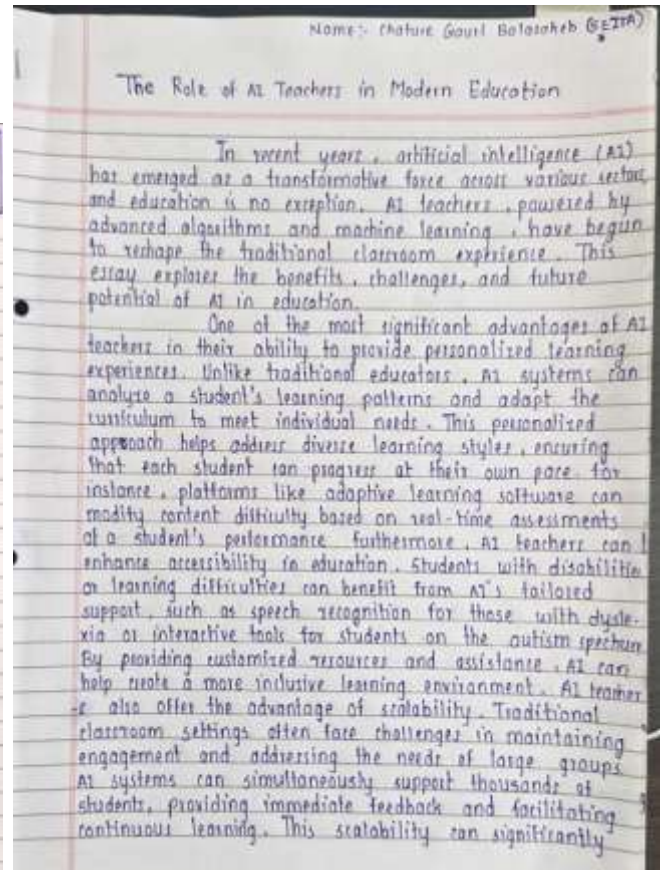 Name:- Chature Gauri Balasaheb (SEITA)
The Role of AI Teachers in Modern Education
In recent years, artificial intelligence (AI)
has emerged as a transformative force across various sectors,
and education is no exception. AI teachers, powered by
advanced algorithms and machine learning, have begun
to reshape the traditional classroom experience. This
essay explores the benefits, challenges, and future
potential of AI in education.
One of the most significant advantages of AI
teachers in their ability to provide personalized learning
experiences. Unlike traditional educators, AI systems can
analyze a student's learning patterns and adapt the
curriculum to meet individual needs. This personalized
approach helps address diverse learning styles, ensuring
that each student can progress at their own pace. for
instance, platforms like adaptive learning software can
modify content difficulty based on real-time assessments
of a student's performance furthermore, AI teachers can
enhance accessibility in education. Students with disabilitie
or learning difficulties can benefit from AI's tailored
support, such as speech recognition for those with dysle-
xia or interactive tools for students on the autism spectrum
By providing customized resources and assistance, AI can
help create a more inclusive learning environment. AI teacher
-s also offer the advantage of scalability. Traditional
classroom settings often face challenges in maintaining
engagement and addressing the needs of large groups
AI systems can simultaneously support thousands of
students, providing immediate feedback and facilitating
continuous learning. This scalability can significantly